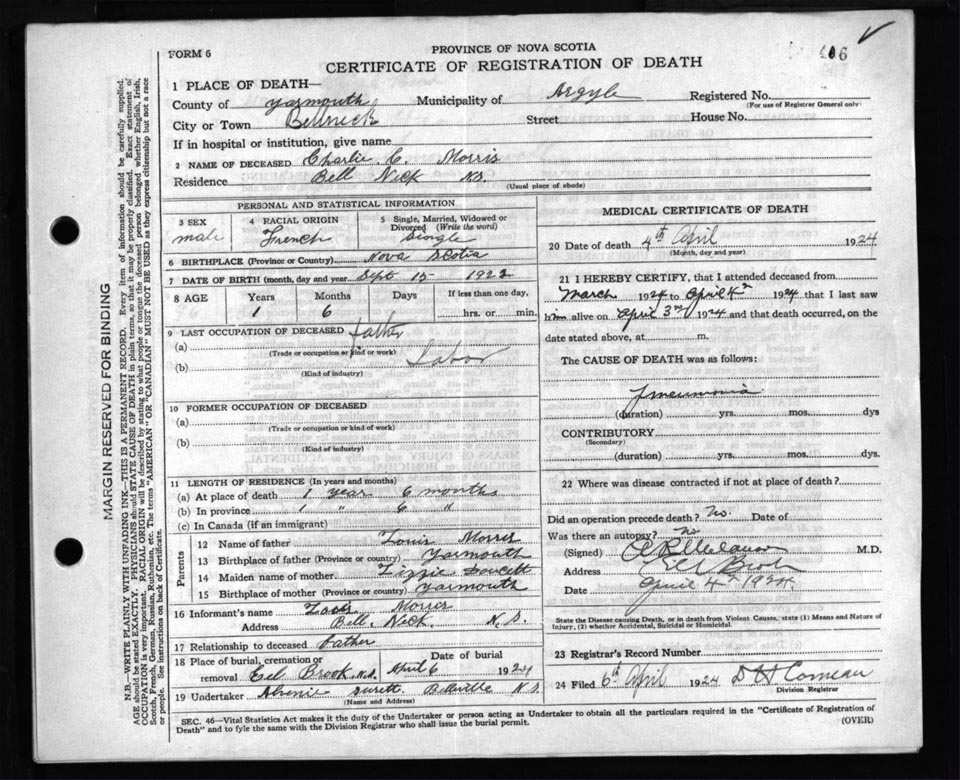 406
FORM 6
PROVINCE OF NOVA SCOTIA
CERTIFICATE OF REGISTRATION OF DEATH
1 PLACE OF DEATH—
County of Yarmouth Municipality of Argyle Registered No.
(For use of Registrar General only)
City or Town Bellneck Street House No.
If in hospital or institution, give name
2 NAME OF DECEASED Charlie C. Morris
Residence Bell Nick N.S.
(Usual place of abode)
PERSONAL AND STATISTICAL INFORMATION
3 SEX male
4 RACIAL ORIGIN French
5 Single, Married, Widowed or Divorced (Write the word) Single
6 BIRTHPLACE (Province or Country) Nova Scotia
7 DATE OF BIRTH (month, day and year) Sept 15 1922
8 AGE Years Months Days If less than one day,
1 6 hrs. or min.
9 LAST OCCUPATION OF DECEASED Father
(a)
(Trade or occupation or kind or work)
(b) Labor
(Kind of industry)
10 FORMER OCCUPATION OF DECEASED
(a)
(Trade or occupation or kind of work)
(b)
(Kind of industry)
11 LENGTH OF RESIDENCE (In years and months)
(a) At place of death 1 year 6 months
(b) In province 1 " 6 "
(c) In Canada (if an immigrant)
Parents
12 Name of father Louis Morris
13 Birthplace of father (Province or country) Yarmouth
14 Maiden name of mother Lizzie Doucett
15 Birthplace of mother (Province or country) Yarmouth
16 Informant's name Morris
Address Bell Nick N.S.
17 Relationship to deceased Father
18 Place of burial, cremation or removal Eel Brook N.S. Date of burial April 6 1924
19 Undertaker Surett Belleville N.S.
(Name and Address)
MEDICAL CERTIFICATE OF DEATH
20 Date of death 4th April 1924
(Month, day and year)
21 I HEREBY CERTIFY, that I attended deceased from
March 1924 to April 4th 1924 that I last saw
him alive on April 3rd 1924 and that death occurred, on the
date stated above, at m.
The CAUSE OF DEATH was as follows:
Pneumonia
(duration) yrs. mos. dys
CONTRIBUTORY
(Secondary)
(duration) yrs. mos. dys.
22 Where was disease contracted if not at place of death?
Did an operation precede death? No. Date of
Was there an autopsy? No
(Signed) M.D.
Address Eel Brook
Date April 4th 1924
State the Disease causing Death, or in death from Violent Causes, state (1) Means and Nature of
Injury, (2) whether Accidental, Suicidal or Homicidal.
23 Registrar's Record Number
24 Filed 6th April 1924 D H Comeau
Division Registrar
SEC. 46—Vital Statistics Act makes it the duty of the Undertaker or person acting as Undertaker to obtain all the particulars required in the "Certificate of Registration of
Death" and to fyle the same with the Division Registrar who shall issue the burial permit.
(OVER)
MARGIN RESERVED FOR BINDING
N.B.—WRITE PLAINLY WITH UNFADING INK—THIS IS A PERMANENT RECORD. Every item of information should be carefully supplied.
AGE should be stated EXACTLY. PHYSICIANS should STATE CAUSE OF DEATH in plain terms, so that it may be properly classified. Exact statement of
OCCUPATION is very important. RACIAL ORIGIN will be described by stating to what people or tongue the deceased person belonged whether English, Irish,
Scotch, French, German, Russian, Ruthenian, etc. The terms "AMERICAN" OR "CANADIAN" MUST NOT BE USED as they express citizenship but not a race
or people. See instructions on back of Certificate.